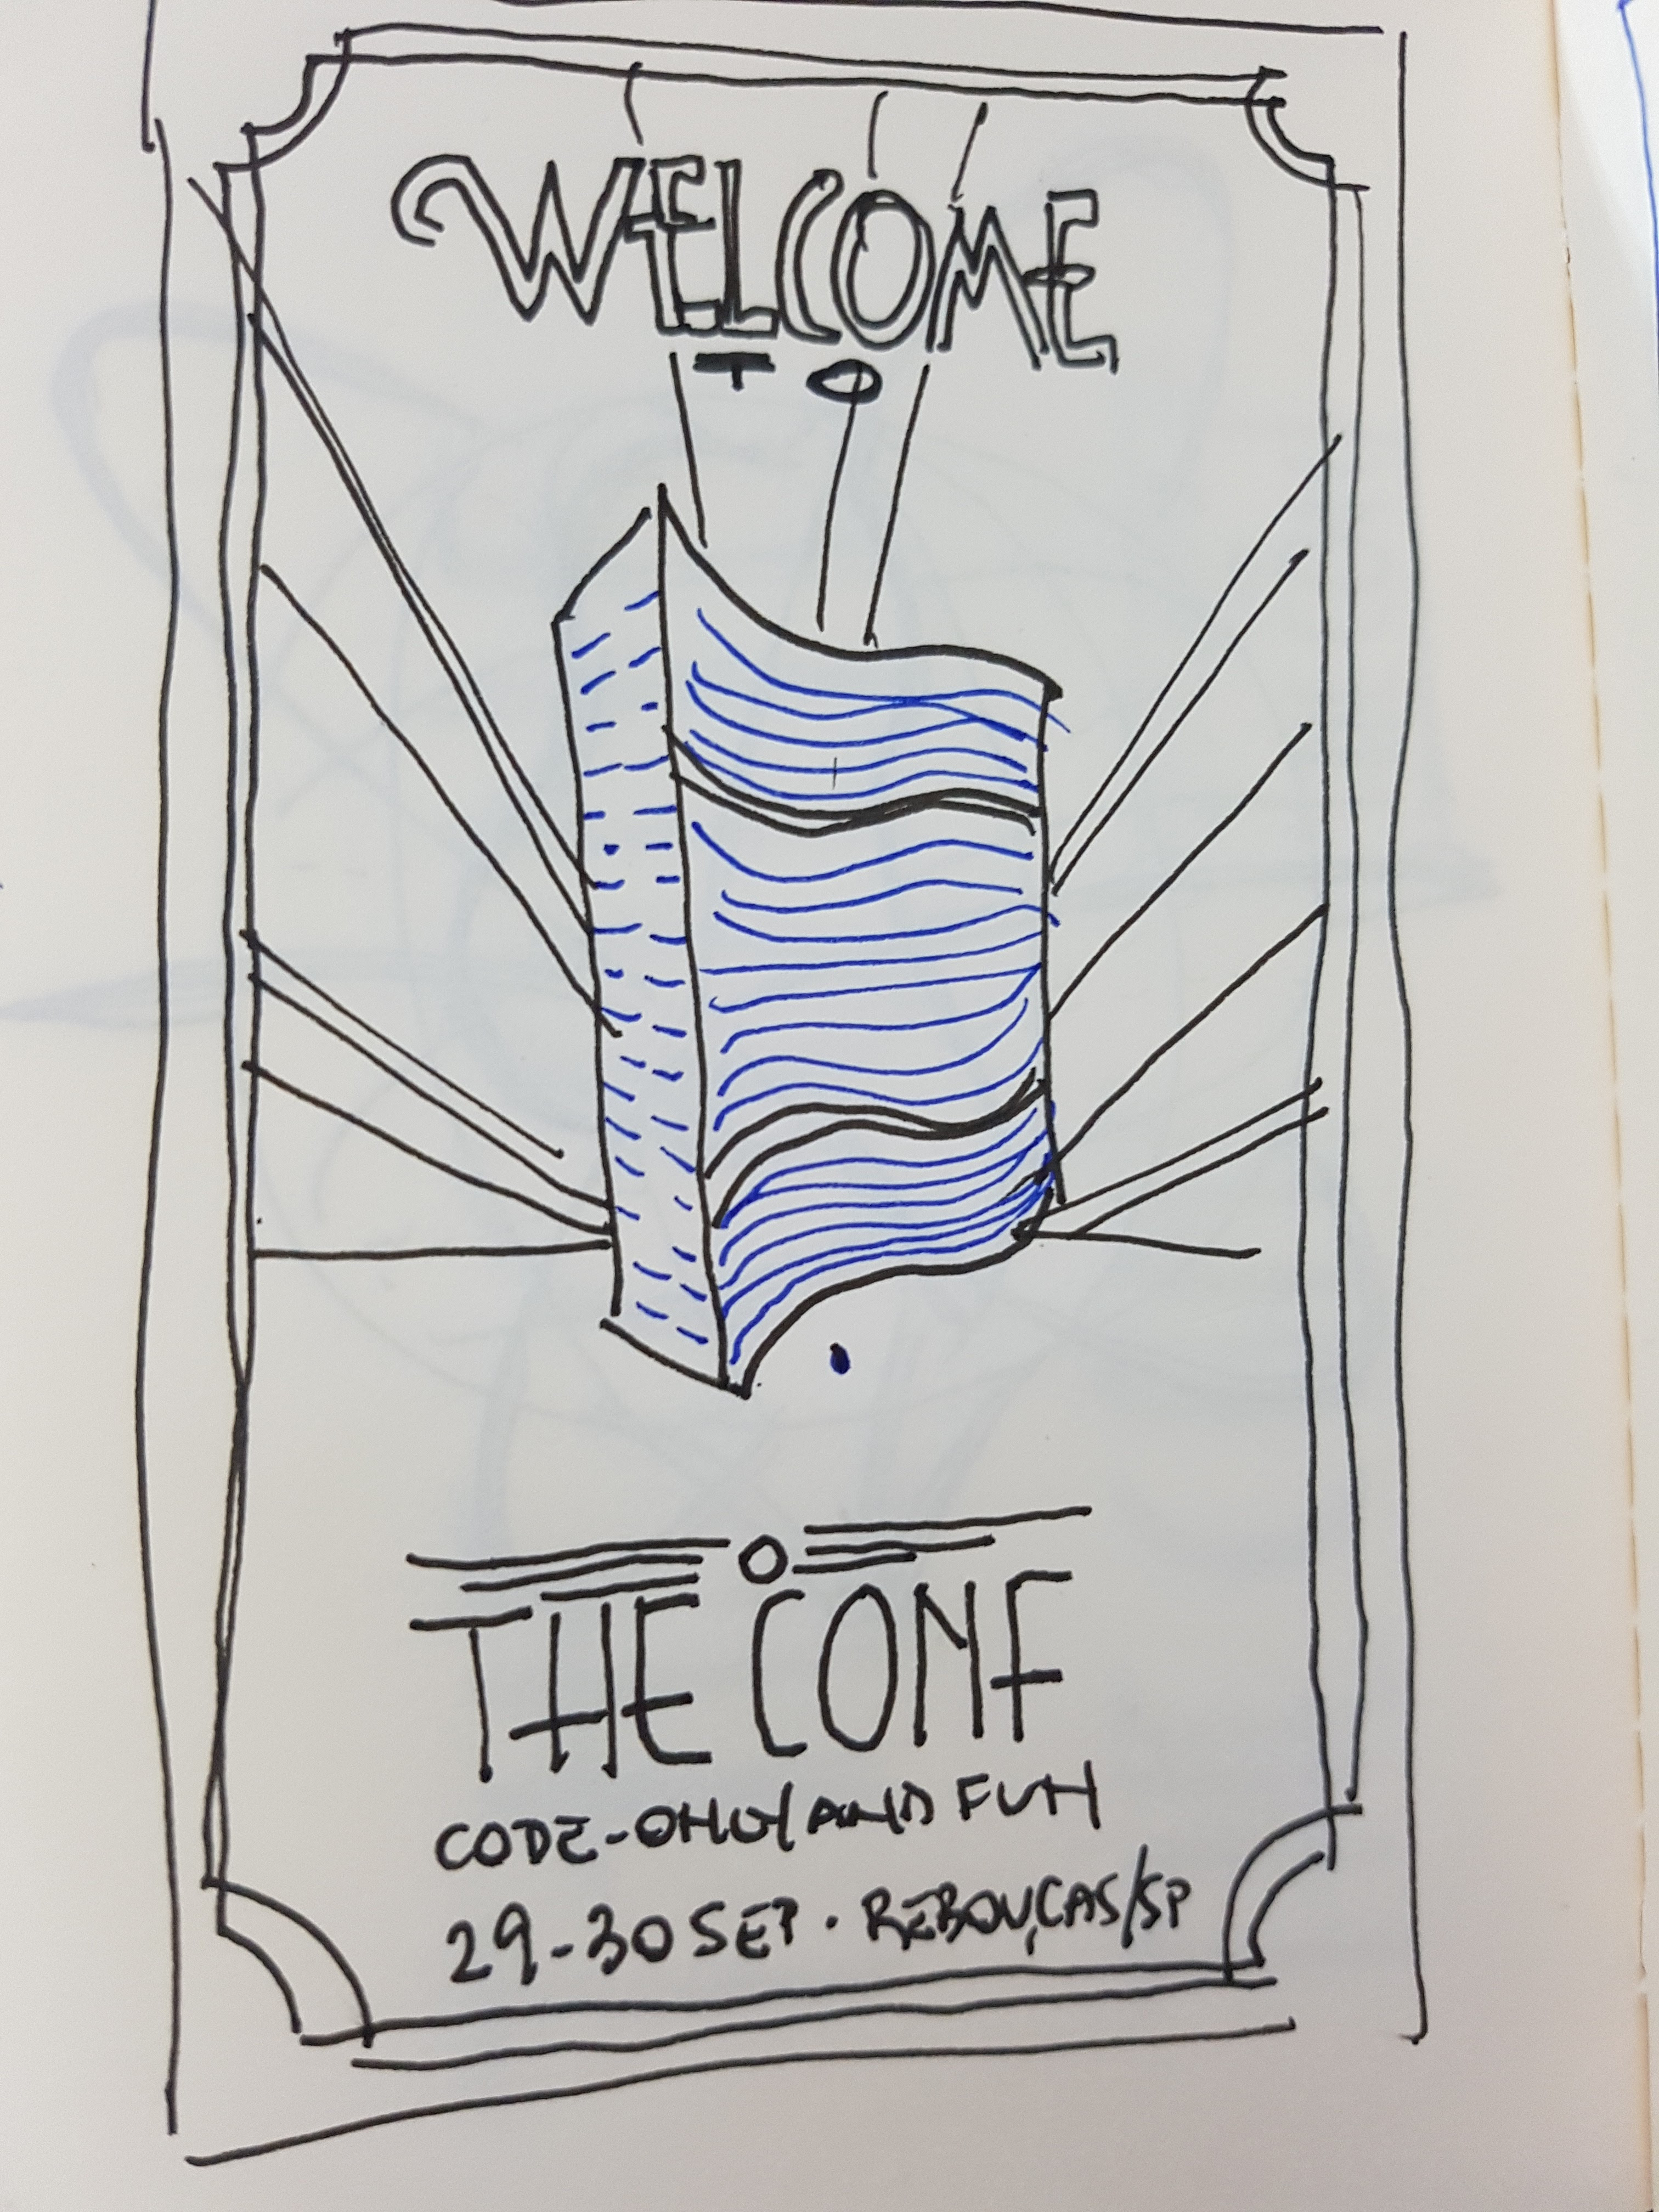 WELCOME
TO
THE CONF
CODE-ONLY AND FUN
29-30 SEP. REBOUÇAS/SP